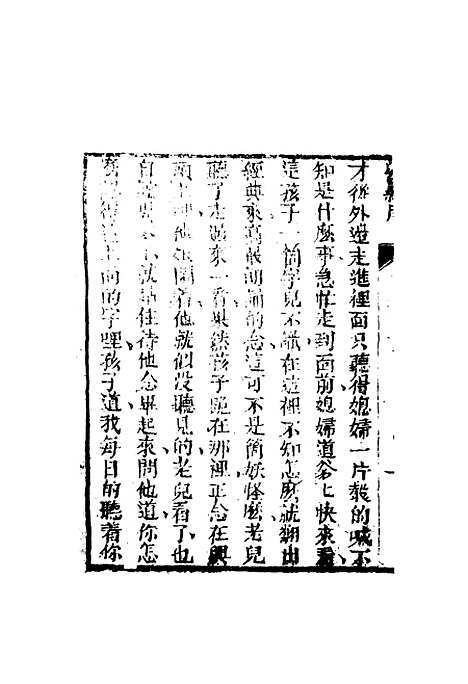 才從外邊走進裡面只聽得媳婦一片聲的喊不
知是什麼事急忙走到面前媳婦道爹七快來看
這孩子一箇字兒不識在這裡不知怎麼就翻出
經典來高嚴朗誦的念這可不是箇妖怪麼老兒
聽了走過來一看果然孩子跪在那裡正念在興
頭上 他 問着他就似没聽見的老兒看了也
自 就站住待他念畢起來問他道你怎
上面的字哩孩子道我每日的聽着你